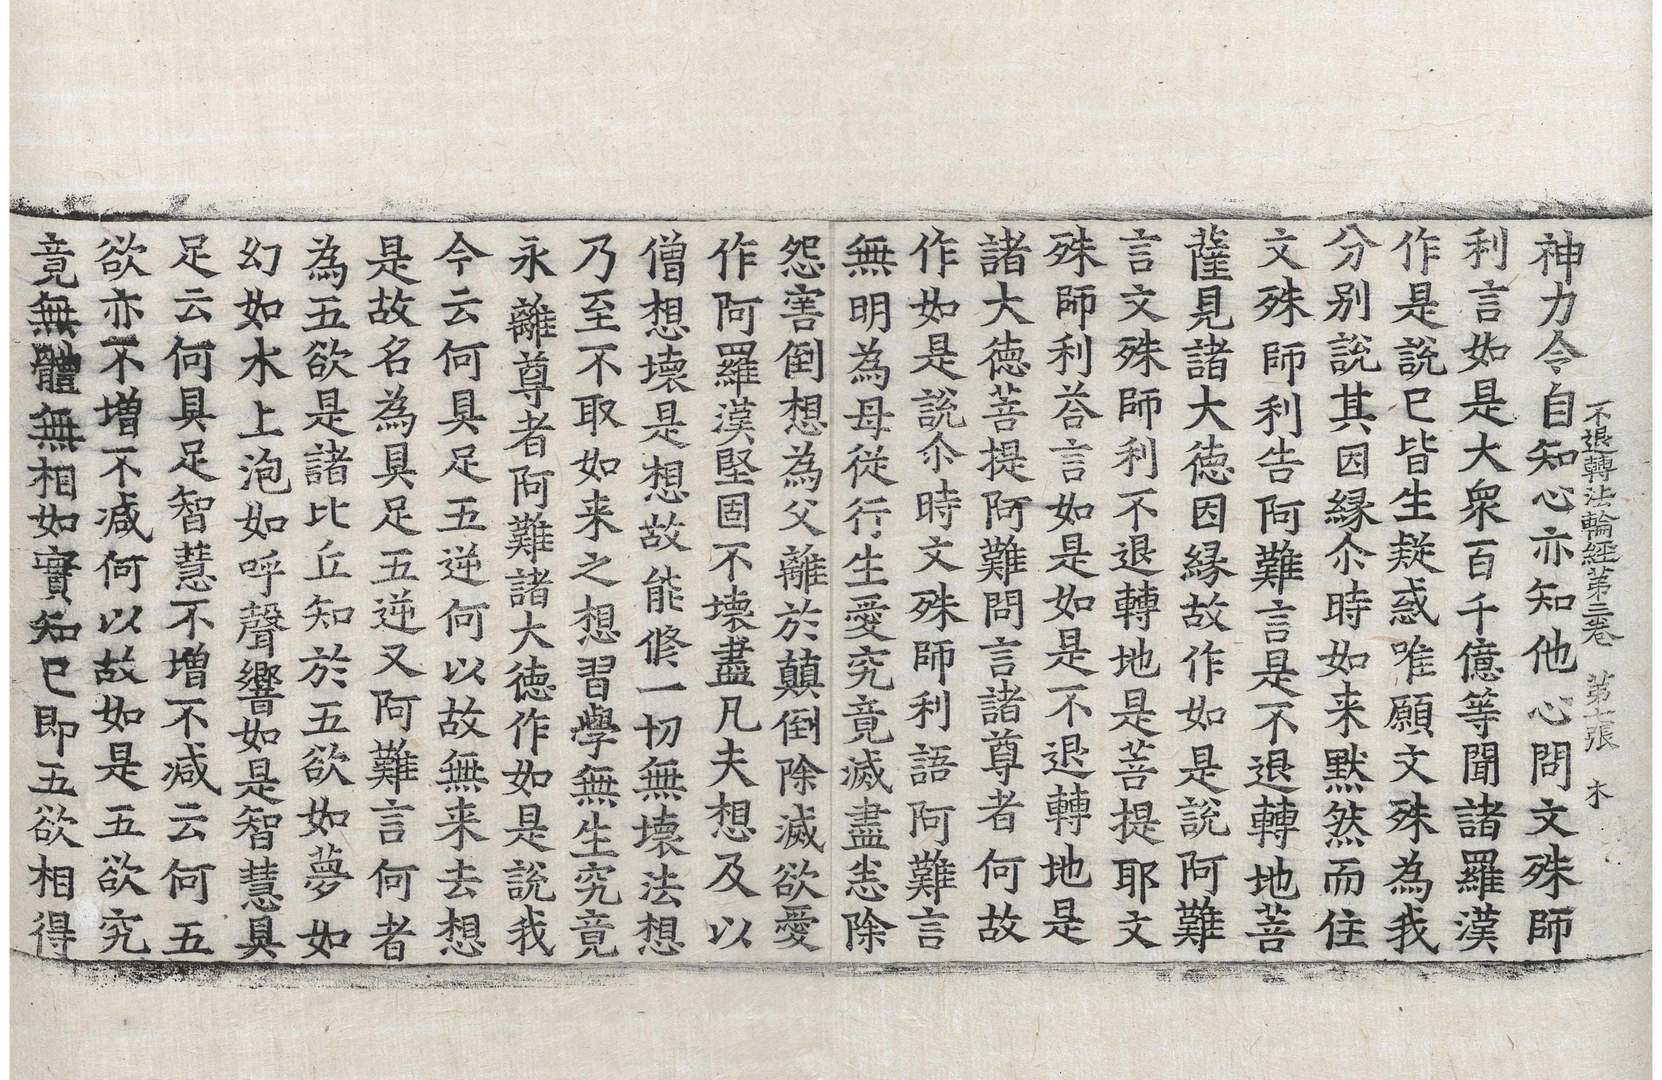 不退轉法輪經第三卷 第十張 木
神力令自知心亦知他心問文殊師
利言如是大衆百千億等聞諸羅漢
作是說已皆生疑惑唯願文殊為我
分別說其因緣尒時如来默然而住
文殊師利告阿難言是不退轉地菩
薩見諸大德因緣故作如是說阿難
言文殊師利不退轉地是菩提耶文
殊師利荅言如是如是不退轉地是
諸大德菩提阿難問言諸尊者何故
作如是說尒時文殊師利語阿難言
無明為母從行生愛究竟滅盡恚除
怨害倒想為父離於顛倒除滅欲愛
作阿羅漢堅固不壞盡凡夫想及以
僧想壞是想故能修一切無壞法想
乃至不取如来之想習學無生究竟
永離尊者阿難諸大德作如是說我
今云何具足五逆何以故無来去想
是故名為具足五逆又阿難言何者
為五欲是諸比丘知於五欲如夢如
幻如水上泡如呼聲響如是智慧具
足云何具足智慧不增不減云何五
欲亦不增不減何以故如是五欲究
竟無體無相如實知已即五欲相得